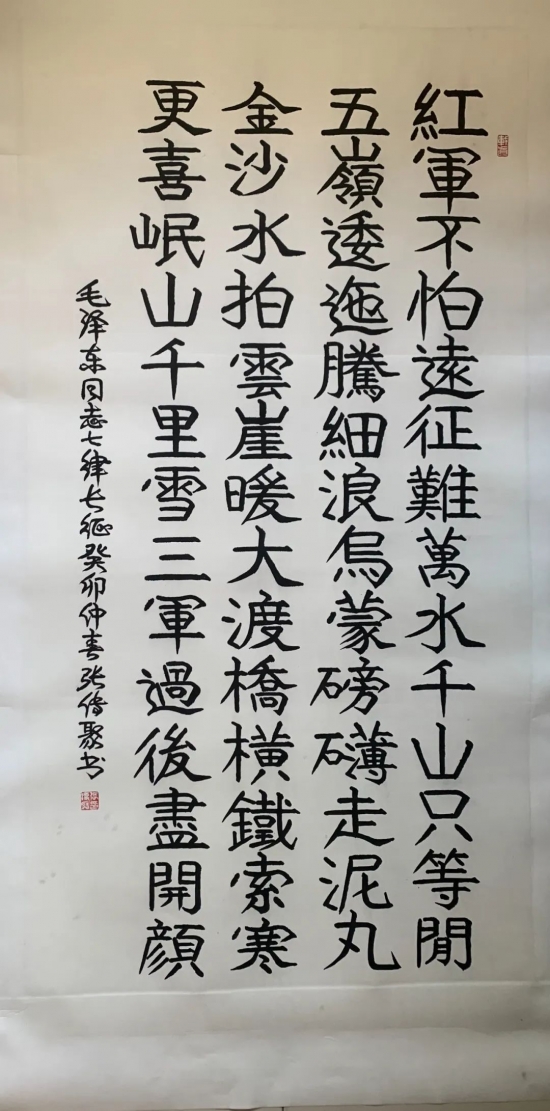 紅軍不怕遠征難萬水千山只等閒
五嶺逶迤騰細浪烏蒙磅礴走泥丸
金沙水拍雲崖暖大渡橋橫鐵索寒
更喜岷山千里雪三軍過後盡開顔
毛泽东同志七律长征癸卯仲春张传聚书